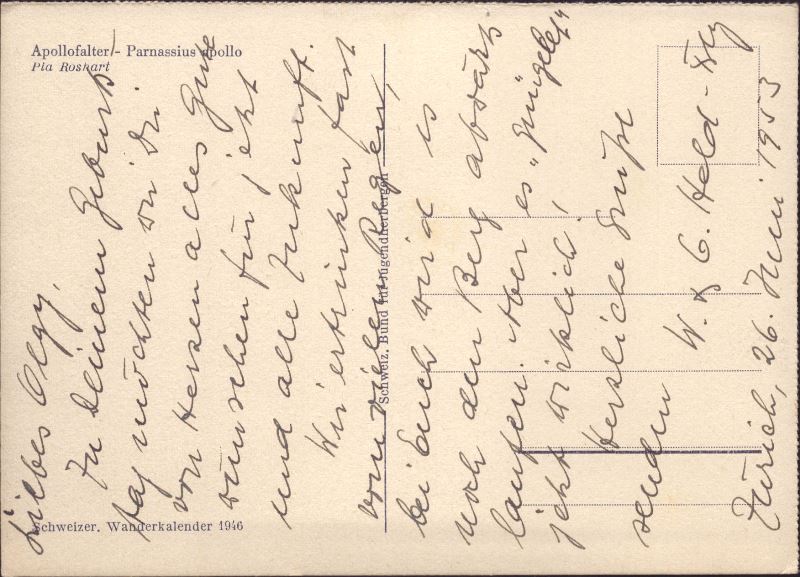 Apollofalter - Parnassius apollo
Pia Roshart
Schweizer. Wanderkalender 1946
Schweiz. Bund für Jugendherbergen
Liebes Olgy,
Zu Deinem Geburts-
tag möchten wir Dir
von Herzen alles Gute
wünschen für jetzt
und alle Zukunft.
Wir ertrinken fast
vom vielen Regen,
bei Euch wird es
noch den Berg abwärts
laufen. Aber es
jetzt wirklich!
Herzliche Grüsse
senden
W. & G. Held
Zürich, 26. Juni 1953